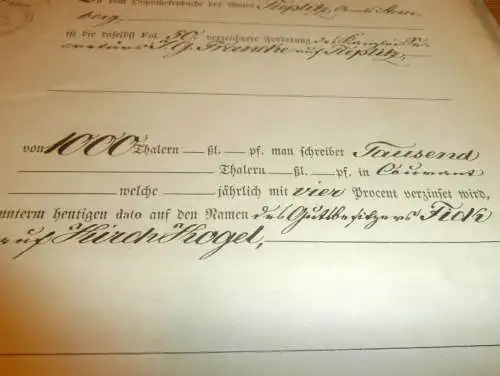 In dem Hypothekenbuche des Gutes Tieplitz, Amts Stern
berg,
ist die daselbst Fol. verzeichnete Forderung des
auf Tieplitz,
von 1000 Thalern — ßl. — pf. man schreibet Tausend
Thalern — ßl. — pf. in Courant
welche — jährlich mit vier Procent verzinset wird,
unterm heutigen dato auf den Namen des Gutsbesitzers Fick
auf Kirch Kogel,